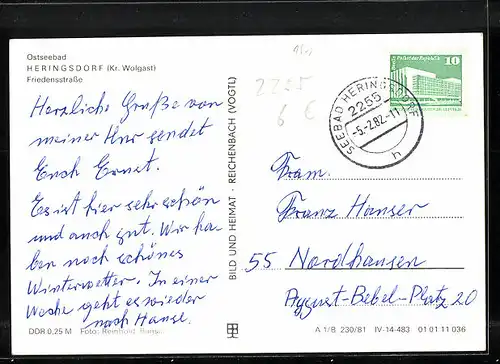 Ostseebad
HERINGSDORF (Kr. Wolgast)
Friedensstraße
Herzliche Grüße von
meiner Kur sendet
Euch Ernst.
Es ist hier sehr schön
und auch gut. Wir ha-
ben noch schönes
Winterwetter. In einer
Woche geht es wieder
nach Hause.
DDR 0,25 M Foto: Reinhold
BILD UND HEIMAT · REICHENBACH (VOGTL)
2255
6 €
SEEBAD HERINGSDORF
2255
-5.-2.82-11
h
Palast der Republik
10
DDR
Fam.
Franz Hanser
55 Nordhausen
August-Bebel-Platz 20
A 1/B 230/81 IV-14-483 01 01 11 036